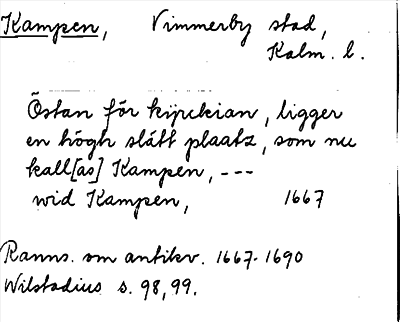 Kampen, Vimmerby stad,
Kalm. l.
Östan för kijrckian, ligger
en högh slätt plaatz, som nu
kall[as] Kampen, ---
wid Kampen, 1667
Ranns. om antikv. 1667-1690
Wilstadius s. 98, 99.